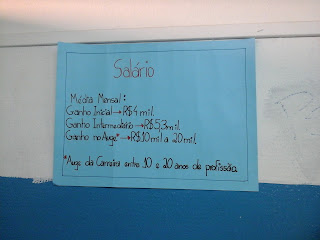 Salário
Média Mensal:
Ganho Inicial→R$4 mil.
Ganho Intermediário→R$5,3 mil.
Ganho no Auge*→R$10 mil a 20 mil.
*Auge da Carreira entre 10 e 20 anos de profissão.